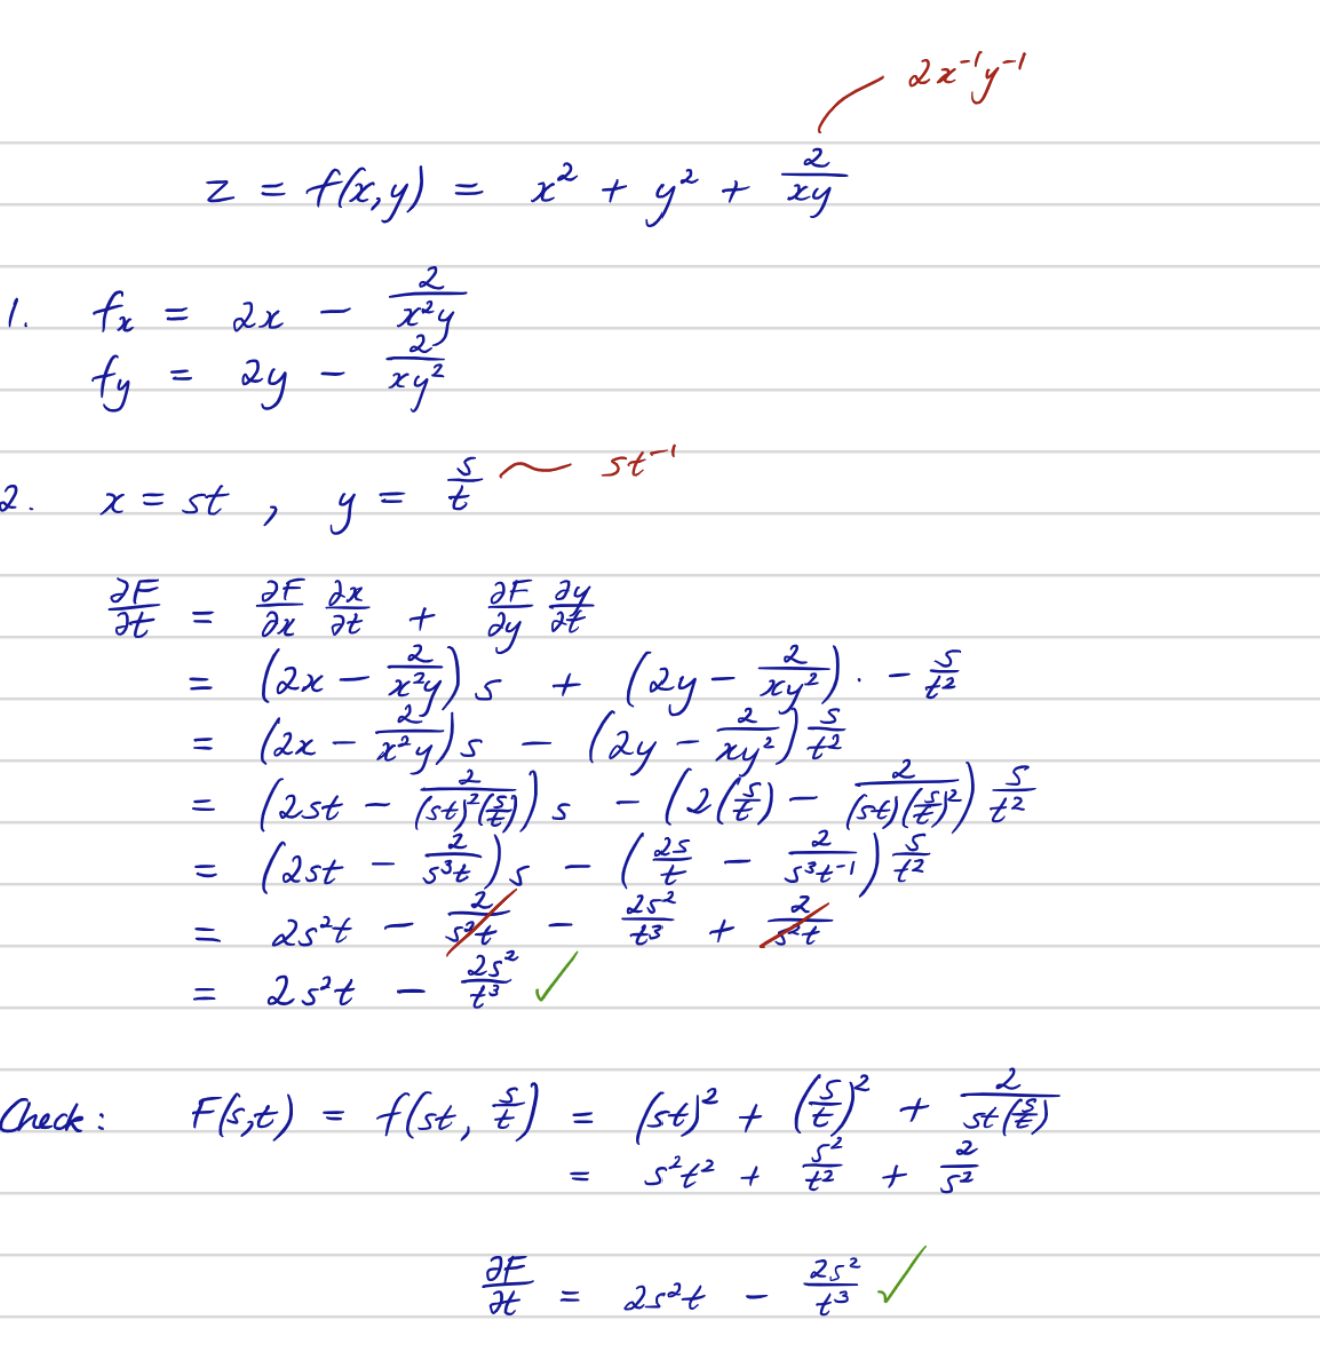 2x⁻¹y⁻¹
z = f(x,y) = x² + y² + 2/(xy)
1. fₓ = 2x − 2/(x²y)
f_y = 2y − 2/(xy²)
2. x = st , y = s/t ~ st⁻¹
∂F/∂t = ∂F/∂x ∂x/∂t + ∂F/∂y ∂y/∂t
= (2x − 2/(x²y)) s + (2y − 2/(xy²)) · − s/t²
= (2x − 2/(x²y)) s − (2y − 2/(xy²)) s/t²
= (2st − 2/((st)²(s/t))) s − (2(s/t) − 2/((st)(s/t)²)) s/t²
= (2st − 2/(s³t)) s − (2s/t − 2/(s³t⁻¹)) s/t²
= 2s²t − 2/(s²t) − 2s²/t³ + 2/(s²t)
= 2s²t − 2s²/t³ ✓
Check: F(s,t) = f(st, s/t) = (st)² + (s/t)² + 2/(st(s/t))
= s²t² + s²/t² + 2/s²
∂F/∂t = 2s²t − 2s²/t³ ✓